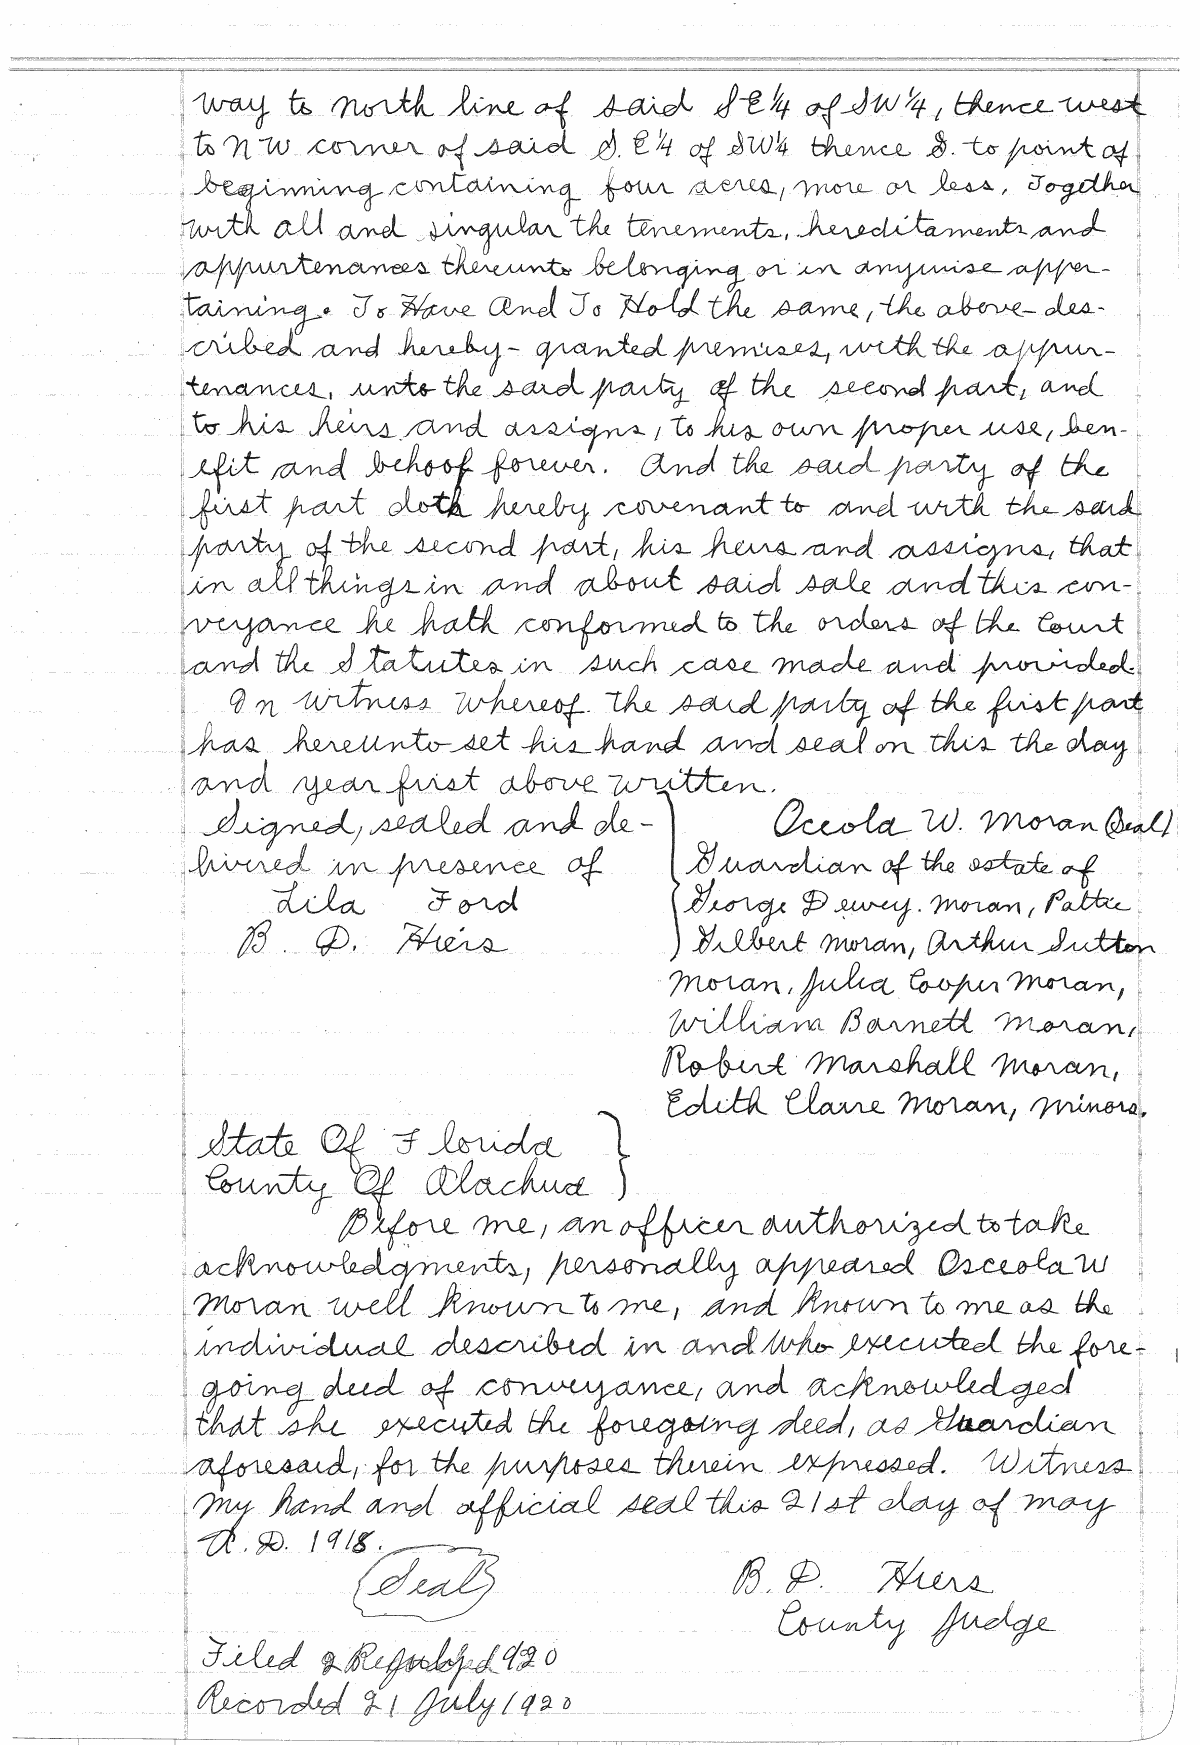 way to north line of said SE¼ of SW¼, thence west
to NW corner of said S.E¼ of SW¼ thence S. to point of
beginning containing four acres, more or less, Together
with all and singular the tenements, hereditaments and
appurtenances thereunto belonging or in anywise apper-
taining. To Have And To Hold the same, the above-des-
cribed and hereby-granted premises, with the appur-
tenances, unto the said party of the second part, and
to his heirs and assigns, to his own proper use, ben-
efit and behoof forever. And the said party of the
first part doth hereby covenant to and with the said
party of the second part, his heirs and assigns, that
in all things in and about said sale and this con-
veyance he hath conformed to the orders of the Court
and the Statutes in such case made and provided.
In Witness Whereof the said party of the first part
has hereunto set his hand and seal on this the day
and year first above written.
Signed, sealed and de-
livered in presence of
Lila Ford
B. D. Hiers
Oceola W. Moran (Seal)
Guardian of the estate of
George Dewey. Moran, Pattie
Gilbert Moran, Arthur Sutton
Moran, Julia Cooper Moran,
William Barnett Moran,
Robert Marshall Moran,
Edith Claire Moran, minors.
State Of Florida
County Of Alachua
Before me, an officer authorized to take
acknowledgments, personally appeared Osceola W
Moran well known to me, and known to me as the
individual described in and who executed the fore-
going deed of conveyance, and acknowledged
that she executed the foregoing deed, as Guardian
aforesaid, for the purposes therein expressed. Witness
my hand and official seal this 21st day of May
A. D. 1918.
(Seal)
B. D. Hiers
County Judge
Filed 2 1920
Recorded 21 July 1920